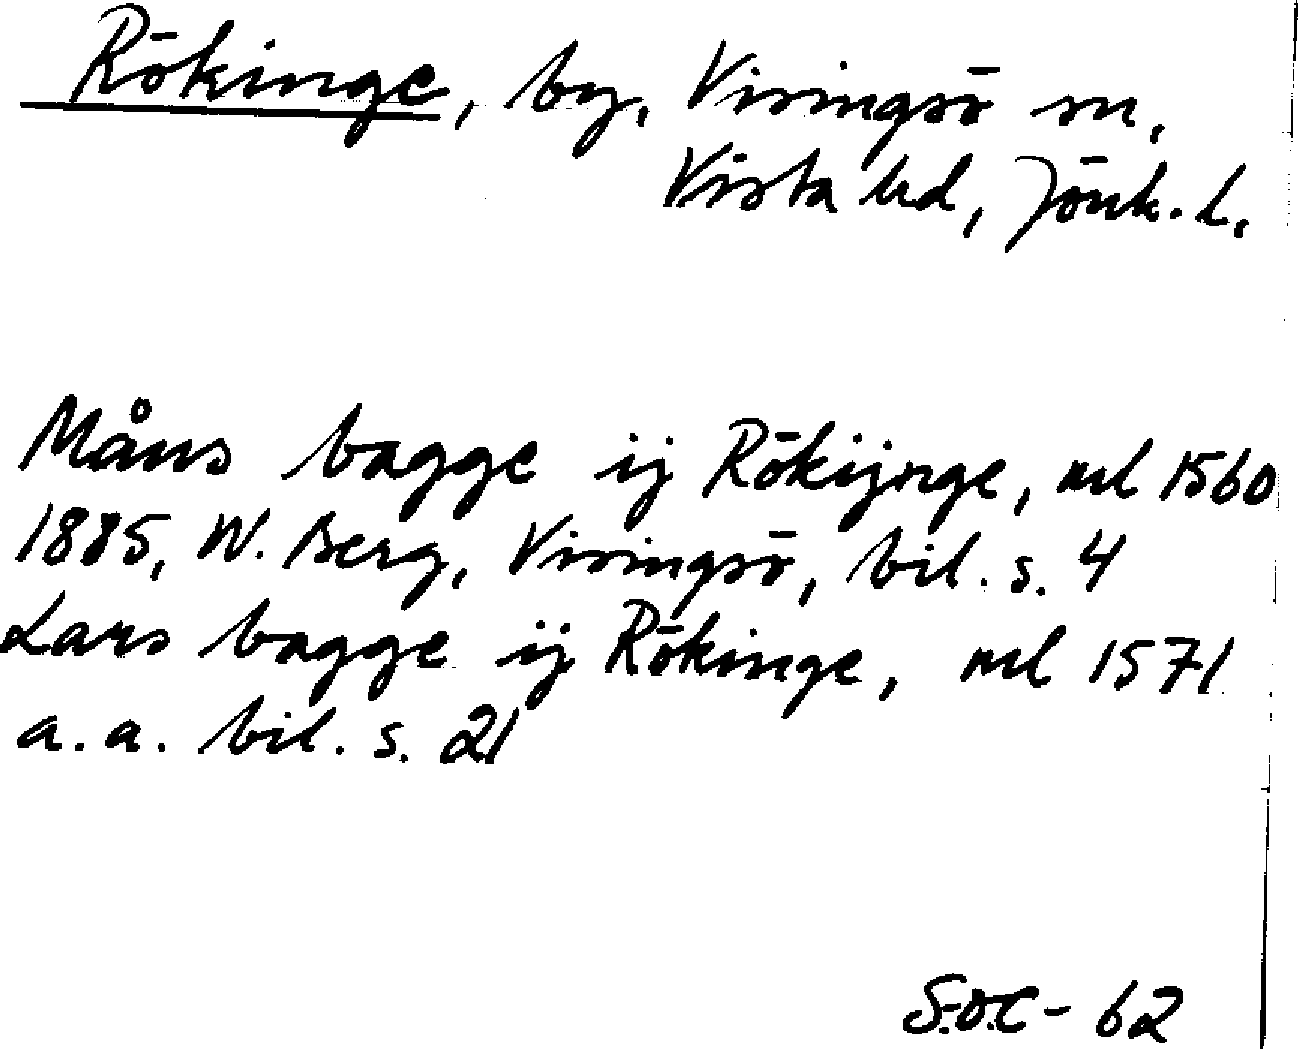 Rökinge, by, Visingsö sn,
Vista hd, Jönk. l.
Måns bagge ij Rökijnge, ml 1560
1885, W. Berg, Visingsö, bil. s. 4
Lars bagge ij Rökinge, ml 1571
a. a. bil. s. 21
S.O.C - 62